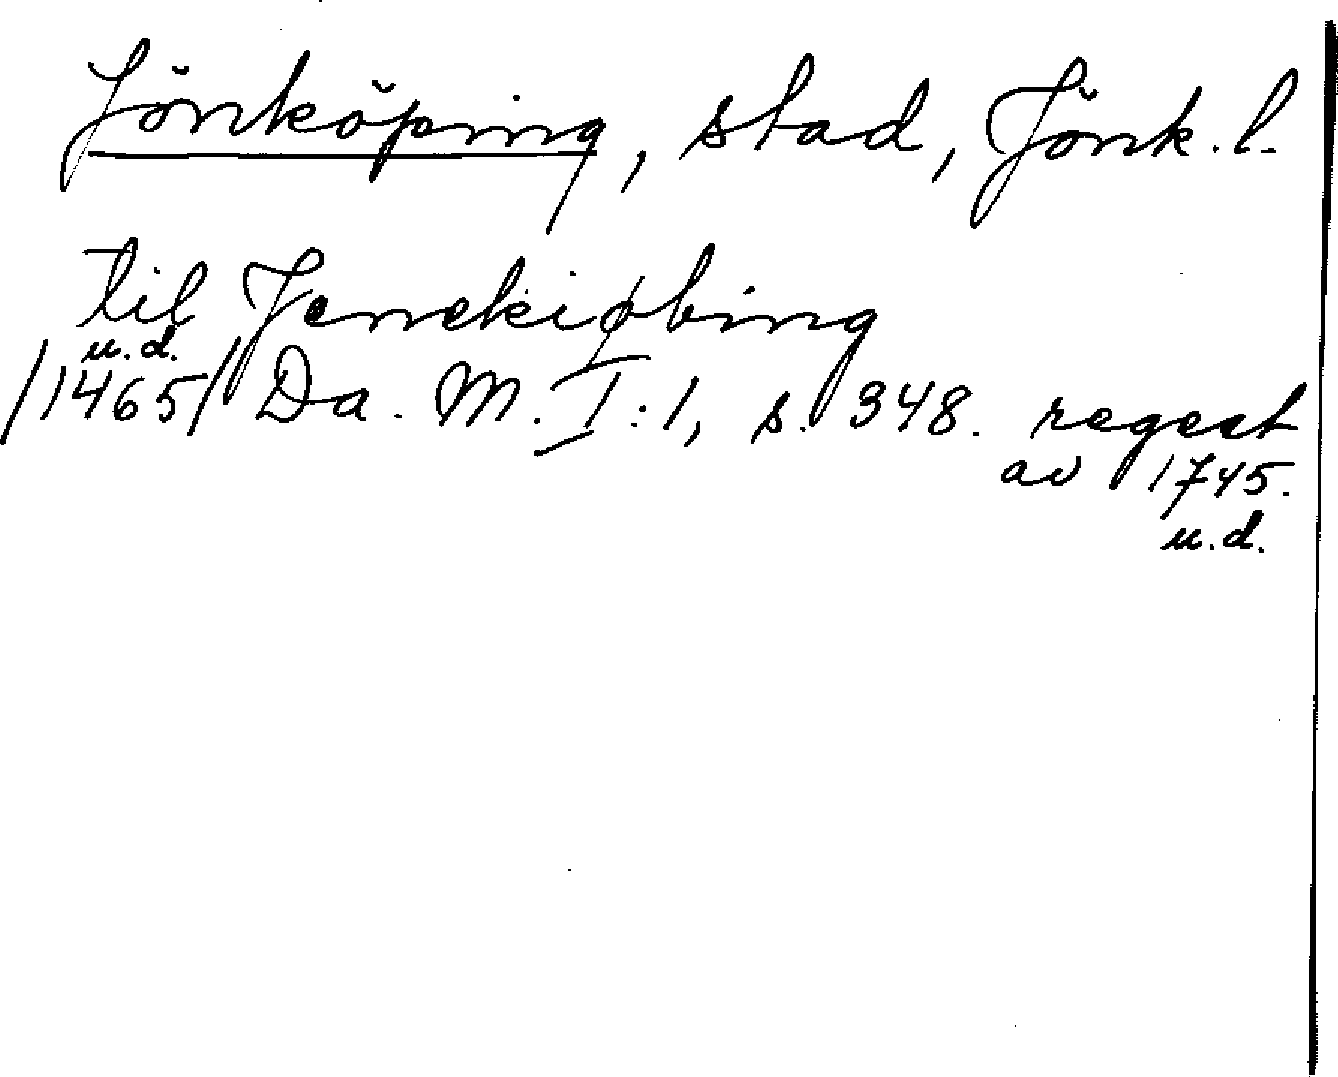 Jönköping, stad, Jönk. l.
til Jenekiøbing
u.d.
/1465/ Da. M. I:1, s. 348. regest
av 1745.
u.d.